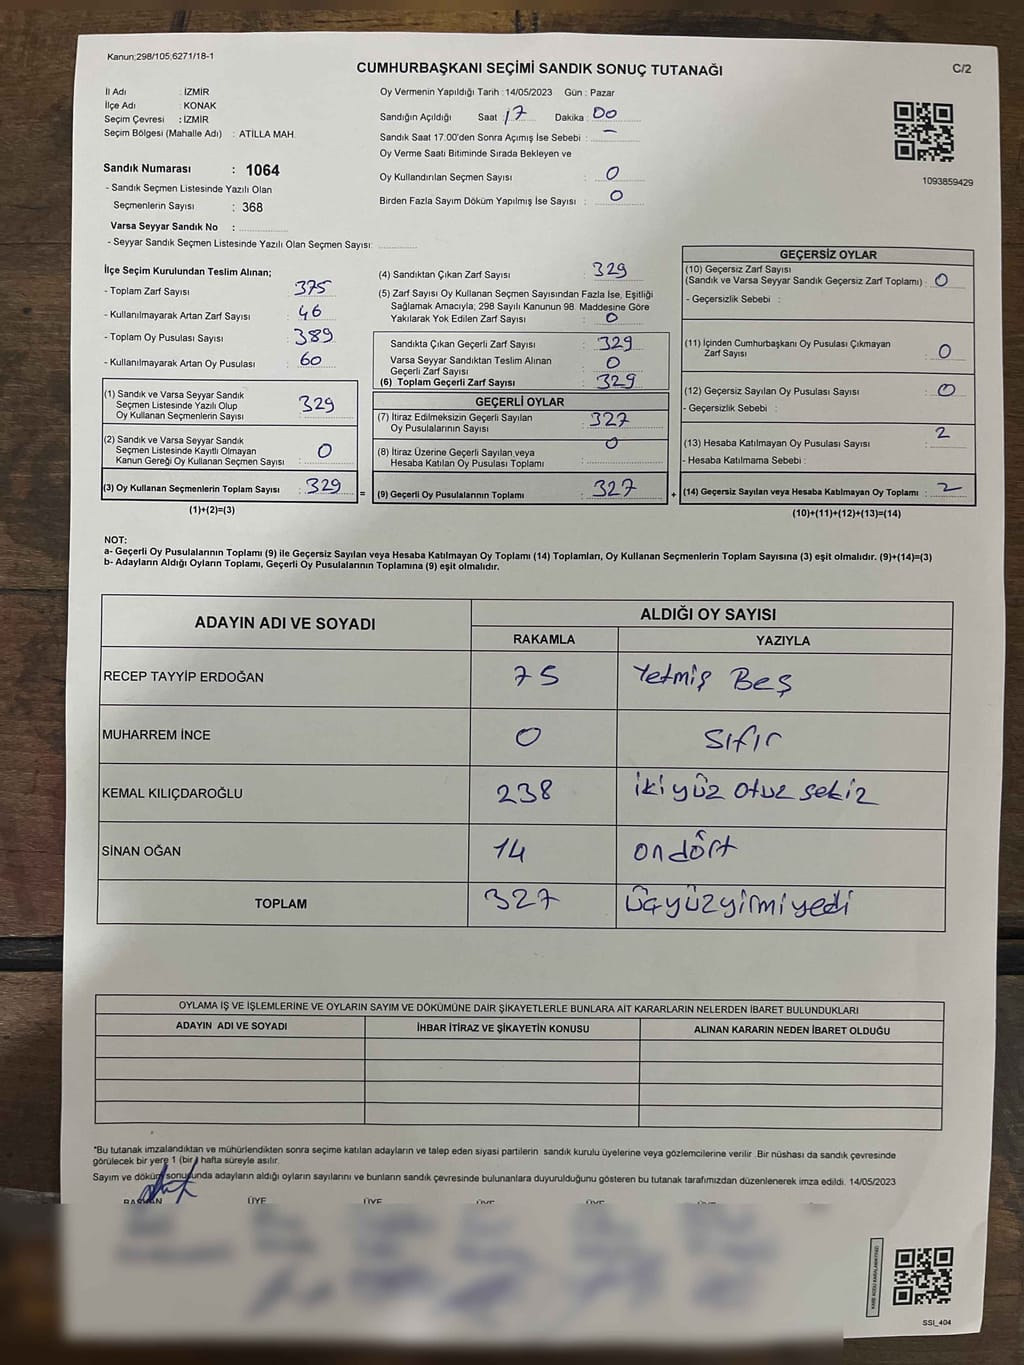 Kanun;298/105;6271/18-1
CUMHURBAŞKANI SEÇİMİ SANDIK SONUÇ TUTANAĞI
C/2
İl Adı : İZMİR
İlçe Adı : KONAK
Seçim Çevresi : İZMİR
Seçim Bölgesi (Mahalle Adı) : ATİLLA MAH.
Oy Vermenin Yapıldığı Tarih : 14/05/2023 Gün : Pazar
Sandığın Açıldığı Saat 17 Dakika 00
Sandık Saat 17.00'den Sonra Açımış İse Sebebi : -
Oy Verme Saati Bitiminde Sırada Bekleyen ve
Oy Kullandırılan Seçmen Sayısı : 0
Birden Fazla Sayım Döküm Yapılmış İse Sayısı : 0
1093859429
Sandık Numarası : 1064
- Sandık Seçmen Listesinde Yazılı Olan
Seçmenlerin Sayısı : 368
Varsa Seyyar Sandık No :
- Seyyar Sandık Seçmen Listesinde Yazılı Olan Seçmen Sayısı:
İlçe Seçim Kurulundan Teslim Alınan;
- Toplam Zarf Sayısı : 375
- Kullanılmayarak Artan Zarf Sayısı : 46
- Toplam Oy Pusulası Sayısı : 389
- Kullanılmayarak Artan Oy Pusulası : 60
(1) Sandık ve Varsa Seyyar Sandık
Seçmen Listesinde Yazılı Olup
Oy Kullanan Seçmenlerin Sayısı : 329
(2) Sandık ve Varsa Seyyar Sandık
Seçmen Listesinde Kayıtlı Olmayan
Kanun Gereği Oy Kullanan Seçmen Sayısı : 0
(3) Oy Kullanan Seçmenlerin Toplam Sayısı : 329
(1)+(2)=(3)
(4) Sandıktan Çıkan Zarf Sayısı : 329
(5) Zarf Sayısı Oy Kullanan Seçmen Sayısından Fazla İse, Eşitliği
Sağlamak Amacıyla; 298 Sayılı Kanunun 98. Maddesine Göre
Yakılarak Yok Edilen Zarf Sayısı : 0
Sandıkta Çıkan Geçerli Zarf Sayısı : 329
Varsa Seyyar Sandıktan Teslim Alınan
Geçerli Zarf Sayısı : 0
(6) Toplam Geçerli Zarf Sayısı : 329
GEÇERLİ OYLAR
(7) İtiraz Edilmeksizin Geçerli Sayılan
Oy Pusulalarının Sayısı : 327
(8) İtiraz Üzerine Geçerli Sayılan veya
Hesaba Katılan Oy Pusulası Toplamı : 0
= (9) Geçerli Oy Pusulalarının Toplamı : 327
GEÇERSİZ OYLAR
(10) Geçersiz Zarf Sayısı
(Sandık ve Varsa Seyyar Sandık Geçersiz Zarf Toplamı) : 0
- Geçersizlik Sebebi :
(11) İçinden Cumhurbaşkanı Oy Pusulası Çıkmayan
Zarf Sayısı : 0
(12) Geçersiz Sayılan Oy Pusulası Sayısı : 0
- Geçersizlik Sebebi :
(13) Hesaba Katılmayan Oy Pusulası Sayısı : 2
- Hesaba Katılmama Sebebi :
+ (14) Geçersiz Sayılan veya Hesaba Katılmayan Oy Toplamı : 2
(10)+(11)+(12)+(13)=(14)
NOT:
a- Geçerli Oy Pusulalarının Toplamı (9) ile Geçersiz Sayılan veya Hesaba Katılmayan Oy Toplamı (14) Toplamları, Oy Kullanan Seçmenlerin Toplam Sayısına (3) eşit olmalıdır. (9)+(14)=(3)
b- Adayların Aldığı Oyların Toplamı, Geçerli Oy Pusulalarının Toplamına (9) eşit olmalıdır.
ADAYIN ADI VE SOYADI
ALDIĞI OY SAYISI
RAKAMLA YAZIYLA
RECEP TAYYİP ERDOĞAN 75 Yetmiş Beş
MUHARREM İNCE 0 Sıfır
KEMAL KILIÇDAROĞLU 238 iki yüz otuz sekiz
SİNAN OĞAN 14 on dört
TOPLAM 327 Üçyüzyirmiyedi
OYLAMA İŞ VE İŞLEMLERİNE VE OYLARIN SAYIM VE DÖKÜMÜNE DAİR ŞİKAYETLERLE BUNLARA AİT KARARLARIN NELERDEN İBARET BULUNDUKLARI
ADAYIN ADI VE SOYADI İHBAR İTİRAZ VE ŞİKAYETİN KONUSU ALINAN KARARIN NEDEN İBARET OLDUĞU
*Bu tutanak imzalandıktan ve mühürlendikten sonra seçime katılan adayların ve talep eden siyasi partilerin sandık kurulu üyelerine veya gözlemcilerine verilir. Bir nüshası da sandık çevresinde
görülecek bir yere 1 (bir) hafta süreyle asılır.
Sayım ve döküm sonusunda adayların aldığı oyların sayılarını ve bunların sandık çevresinde bulunanlara duyurulduğunu gösteren bu tutanak tarafımızdan düzenlenerek imza edildi. 14/05/2023
BAŞKAN ÜYE ÜYE ÜYE ÜYE ÜYE
SSI_404